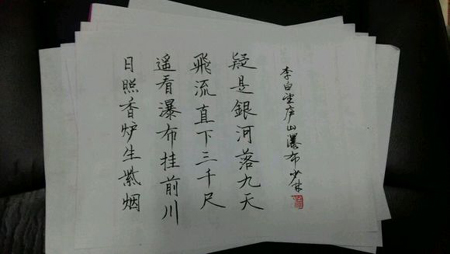 日照香炉生紫烟
遥看瀑布挂前川
飛流直下三千尺
疑是銀河落九天
李白望庐山瀑布